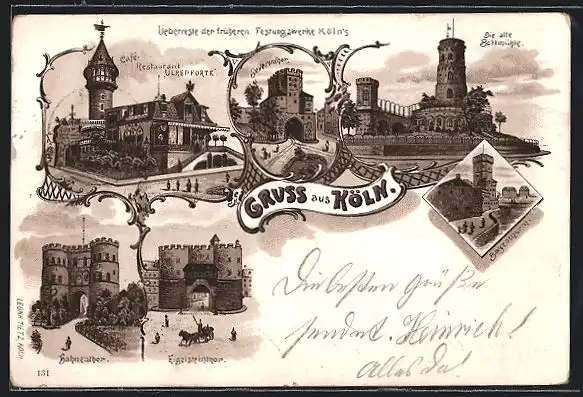 Ueberreste der früheren Festungswerke Köln's
Café-
Restaurant
"ULREPFORTE"
Severinthor.
Die alte
Bottmühle.
GRUSS aus KÖLN.
Bayenthurm.
Hahnenthor.
Eigelsteinthor.
Die besten Grüße
sendet Heinrich!
Alles da!
LEONH. TIETZ, KÖLN
151